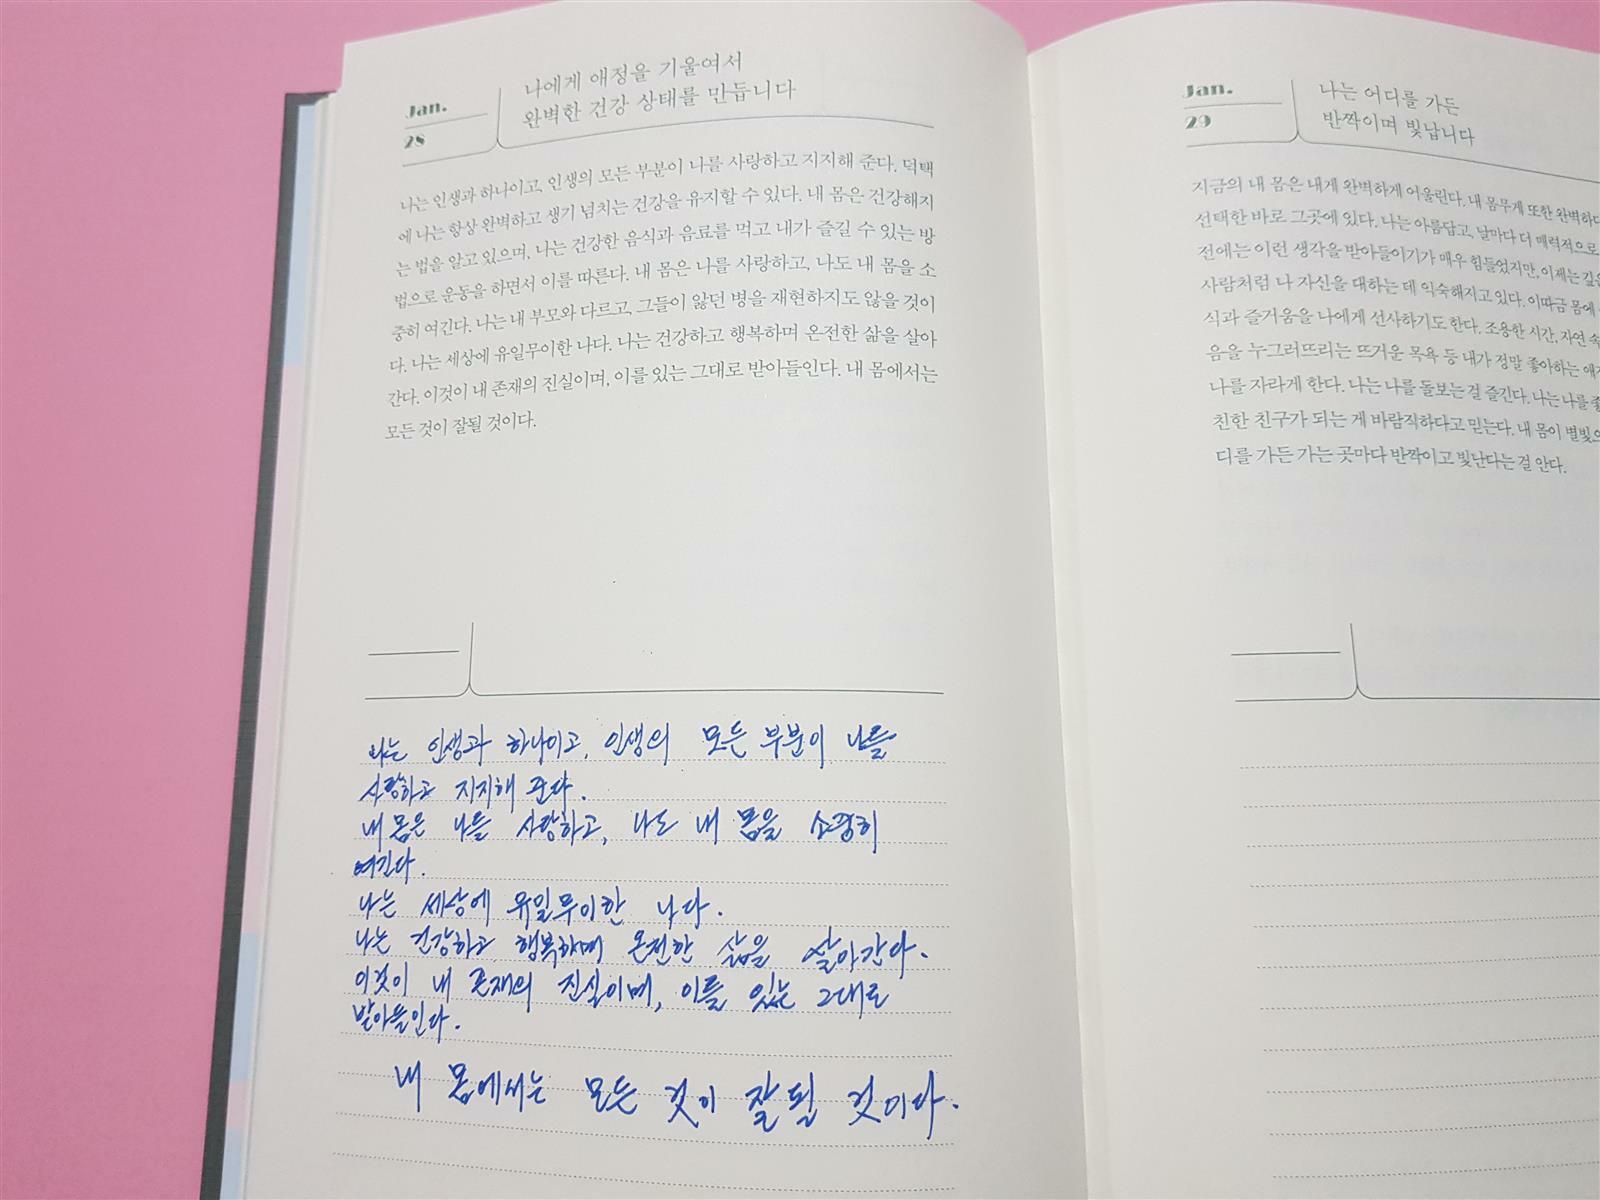 Jan.
28
나에게 애정을 기울여서
완벽한 건강 상태를 만듭니다
나는 인생과 하나이고, 인생의 모든 부분이 나를 사랑하고 지지해 준다. 덕택
에 나는 항상 완벽하고 생기 넘치는 건강을 유지할 수 있다. 내 몸은 건강해지
는 법을 알고 있으며, 나는 건강한 음식과 음료를 먹고 내가 즐길 수 있는 방
법으로 운동을 하면서 이를 따른다. 내 몸은 나를 사랑하고, 나도 내 몸을 소
중히 여긴다. 나는 내 부모와 다르고, 그들이 앓던 병을 재현하지도 않을 것이
다. 나는 세상에 유일무이한 나다. 나는 건강하고 행복하며 온전한 삶을 살아
간다. 이것이 내 존재의 진실이며, 이를 있는 그대로 받아들인다. 내 몸에서는
모든 것이 잘될 것이다.
나는 인생과 하나이고, 인생의 모든 부분이 나를
사랑하고 지지해 준다.
내 몸은 나를 사랑하고, 나도 내 몸을 소중히
여긴다.
나는 세상에 유일무이한 나다.
나는 건강하고 행복하며 온전한 삶을 살아간다.
이것이 내 존재의 진실이며, 이를 있는 그대로
받아들인다.
내 몸에서는 모든 것이 잘될 것이다.
Jan.
29
나는 어디를 가든
반짝이며 빛납니다
지금의 내 몸은 내게 완벽하게 어울린다. 내 몸무게 또한 완벽하다
선택한 바로 그곳에 있다. 나는 아름답고, 날마다 더 매력적으로
전에는 이런 생각을 받아들이기가 매우 힘들었지만, 이제는 깊은
사람처럼 나 자신을 대하는 데 익숙해지고 있다. 이따금 몸에
식과 즐거움을 나에게 선사하기도 한다. 조용한 시간, 자연 속
음을 누그러뜨리는 뜨거운 목욕 등 내가 정말 좋아하는 애
나를 자라게 한다. 나는 나를 돌보는 걸 즐긴다. 나는 나를 좋
친한 친구가 되는 게 바람직하다고 믿는다. 내 몸이 별빛으
디를 가든 가는 곳마다 반짝이고 빛난다는 걸 안다.